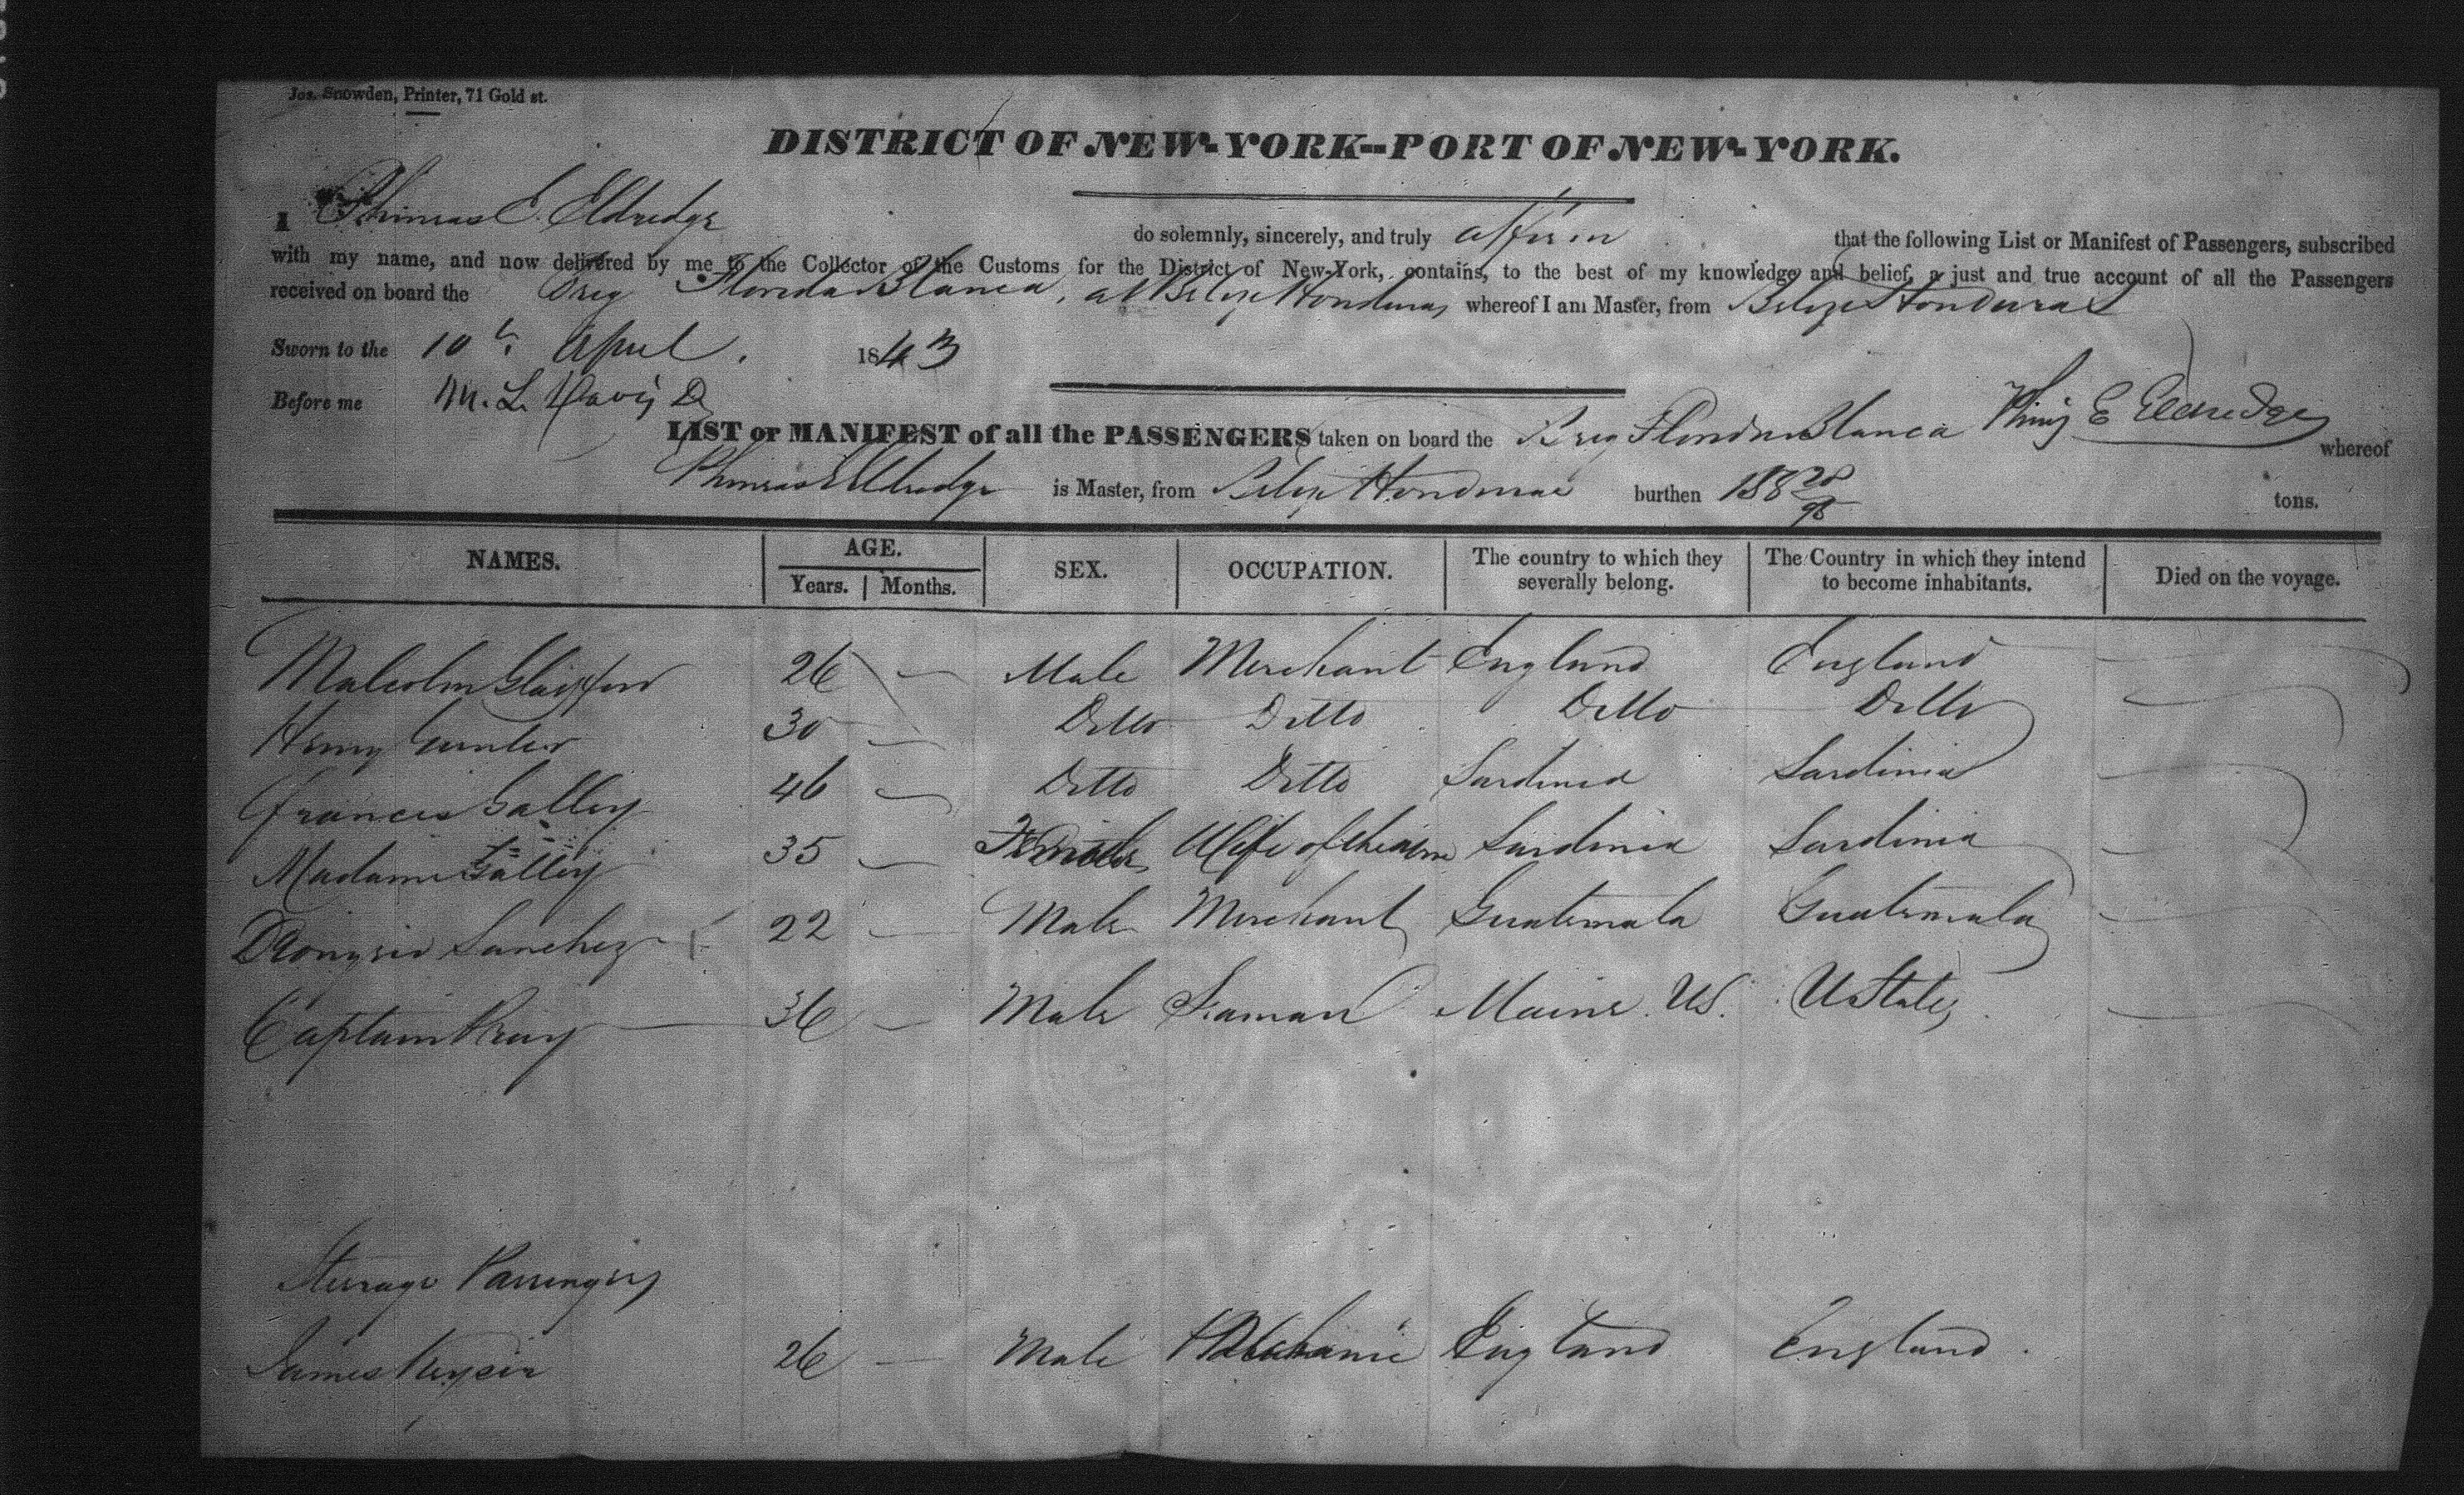 Jos. Snowden, Printer, 71 Gold st.
DISTRICT OF NEW-YORK--PORT OF NEW-YORK.
I Phineas E. Eldredge do solemnly, sincerely, and truly affirm that the following List or Manifest of Passengers, subscribed
with my name, and now delivered by me to the Collector of the Customs for the District of New-York, contains, to the best of my knowledge and belief, a just and true account of all the Passengers
received on board the Brig Florida Blanca, at Belize Honduras whereof I am Master, from Belize Honduras
Sworn to the 10th April. 1843
Before me M. L. Davis
Phins E Eldredge
LIST or MANIFEST of all the PASSENGERS taken on board the Brig Florida Blanca whereof
Phineas E Eldredge is Master, from Belize Honduras burthen 188 tons.
NAMES. AGE. SEX. OCCUPATION. The country to which they severally belong. The Country in which they intend to become inhabitants. Died on the voyage.
Years. Months.
Malcolm 26 — Male Merchant England England
Henry Gunter 30 — Ditto Ditto Ditto Ditto
Francis Galley 46 — Ditto Ditto Sardinia Sardinia
Madame Galley 35 — Female Wife of Sardinia Sardinia
Dionysio Sanchez 22 — Male Merchant Guatemala Guatemala
Captain Pray 36 — Male Seaman Maine. US. U States
Steerage Passengers
James Keyser 26 — Male Mechanic England England.